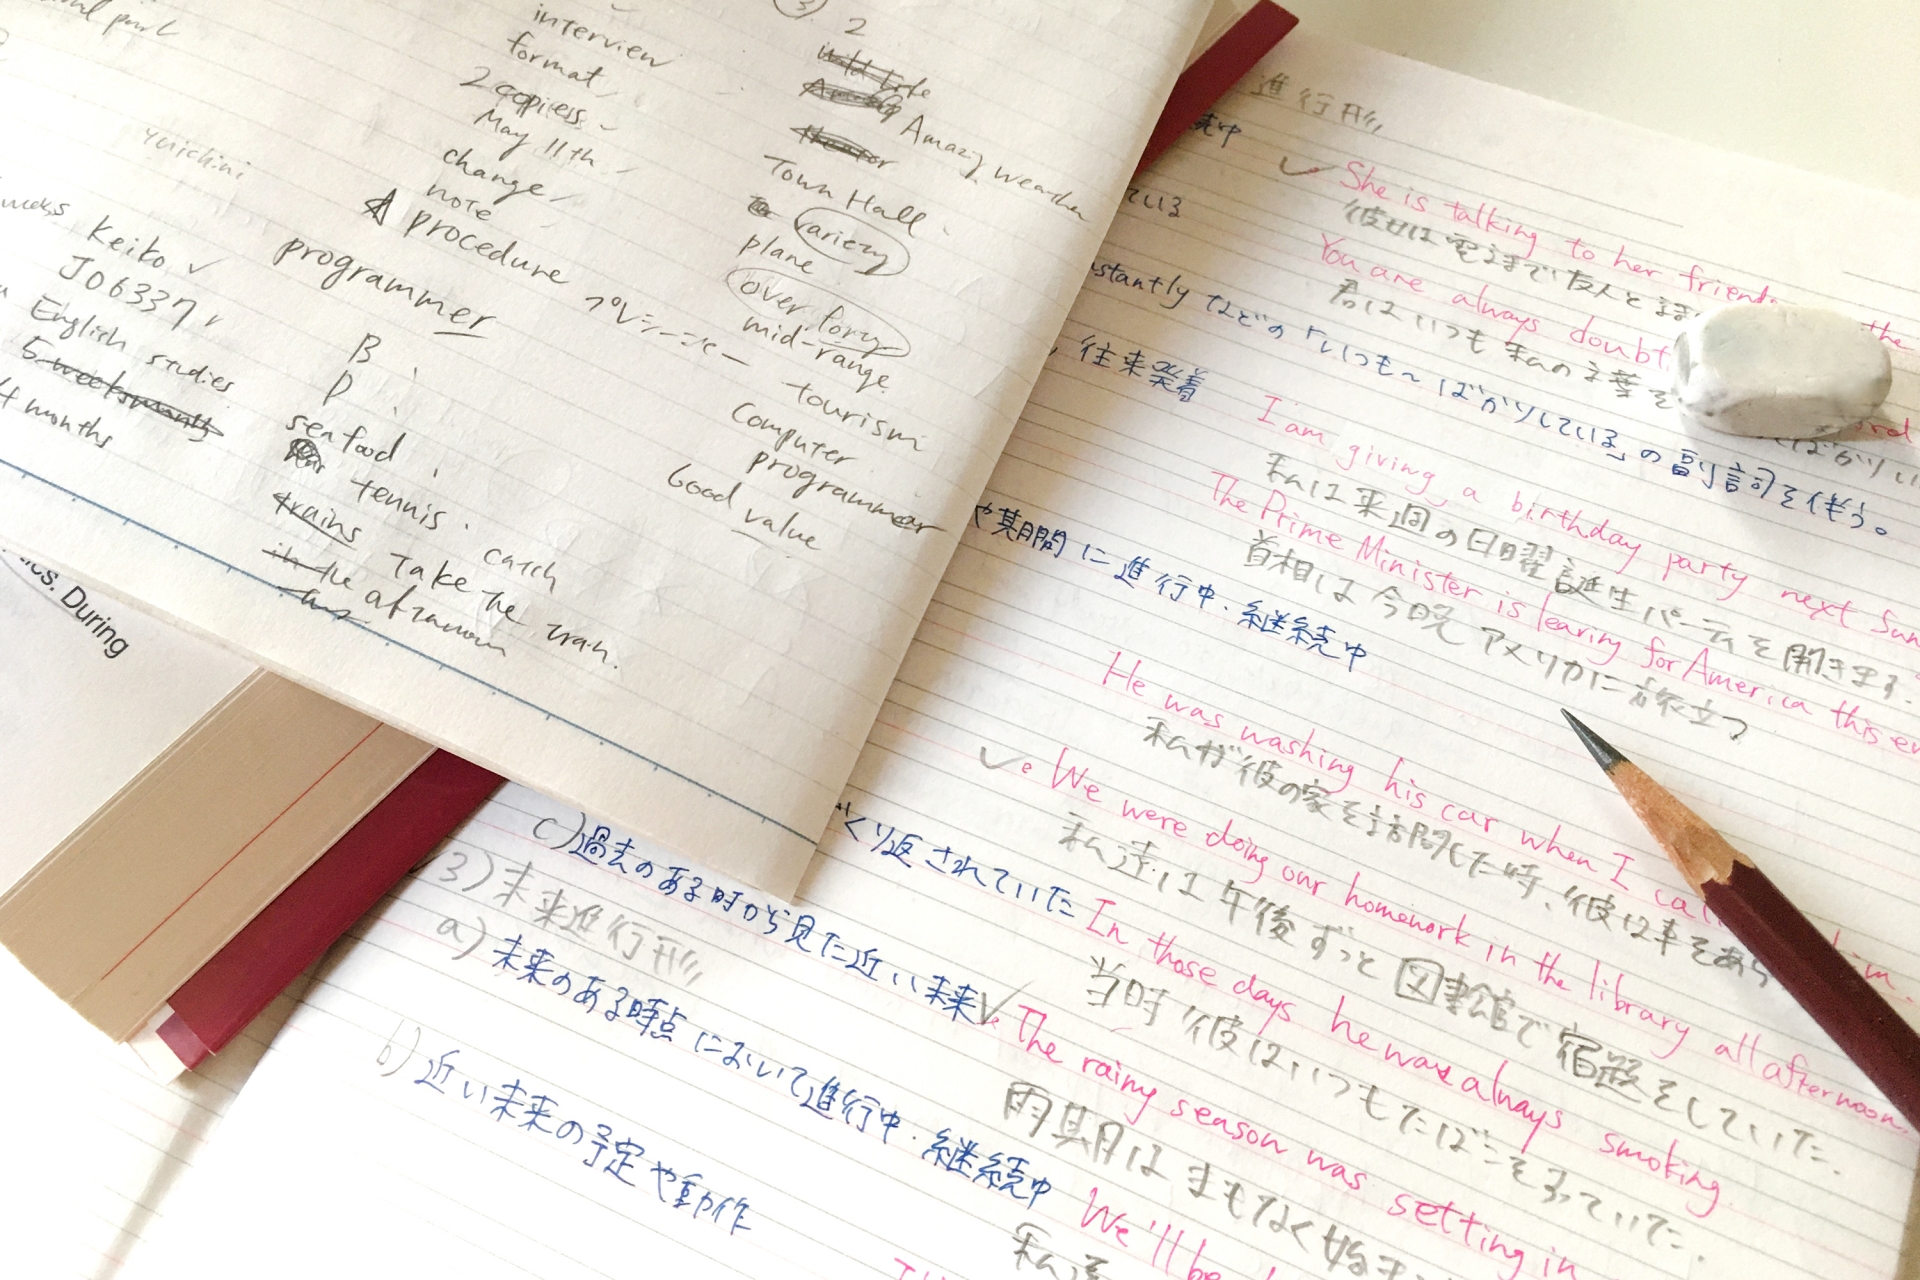 interview
format
2 copiess
May 11th
change
note
procedure
programmer
yuichini
Keiko
J06337
English studies
5 weeks month
4 months
B
D
seafood
tennis.
trains catch
in the Take the tran.
afternoon
2
Amazig weather
Town Hall
variety
plane
over forty
mid-range
tourism
computer
programmar
Good value
During
進行形
続中
ている
She is talking to her friend the
彼女は電話で友人と話
You are always doubt
君はいつも私の言葉を
nstantly などの「いつも〜ばかりしている」の副詞を伴う。
ばかりい
往来発着
I am giving a birthday party next Sun
私は来週の日曜誕生パーティを開きます.
The Prime Minister is learing for America this ev
首相は今晩アメリカに旅立つ
や期間に進行中・継続中
He was washing his car when I cal him.
私が彼の家を訪問した時、彼は車をあら
We were doing our homework in the library all afternoon.
私達は午後ずっと図書館で宿題をしていた.
くり返されていた
In those days he was always smoking.
当時彼はいつもたばこをすっていた.
c) 過去のある時から見た近い未来
The rainy season was setting in
雨期はまもなく始ま
3) 未来進行形
a) 未来のある時点において進行中・継続中
We'll be
私達
b) 近い未来の予定や動作